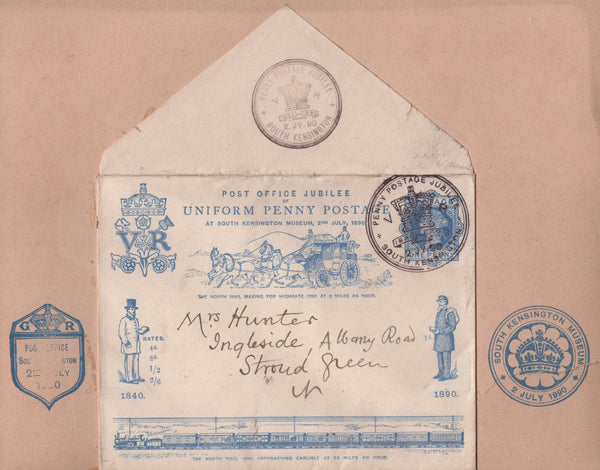 PENNY POSTAGE JUBILEE
V R
2 JY 90
SOUTH KENSINGTON
POST OFFICE JUBILEE
OF
UNIFORM PENNY POSTAGE
AT SOUTH KENSINGTON MUSEUM, 2ND JULY, 1890.
PENNY POSTAGE JUBILEE
V
2 JY 90
SOUTH KENSINGTON
VR
THE NORTH MAIL MAKING FOR HIGHGATE, 1790, AT 8 MILES AN HOUR.
Mrs Hunter
Ingleside, Albany Road
Stroud Green
N
RATES.
4d.
8d.
1/2
2/6
1d.
1840.
1890.
THE NORTH MAIL, 1890, APPROACHING CARLISLE AT 48 MILES AN HOUR.
G R
POST OFFICE
SOUTH KENSINGTON
2ND JULY
1890
SOUTH KENSINGTON MUSEUM.
2 JULY 1890